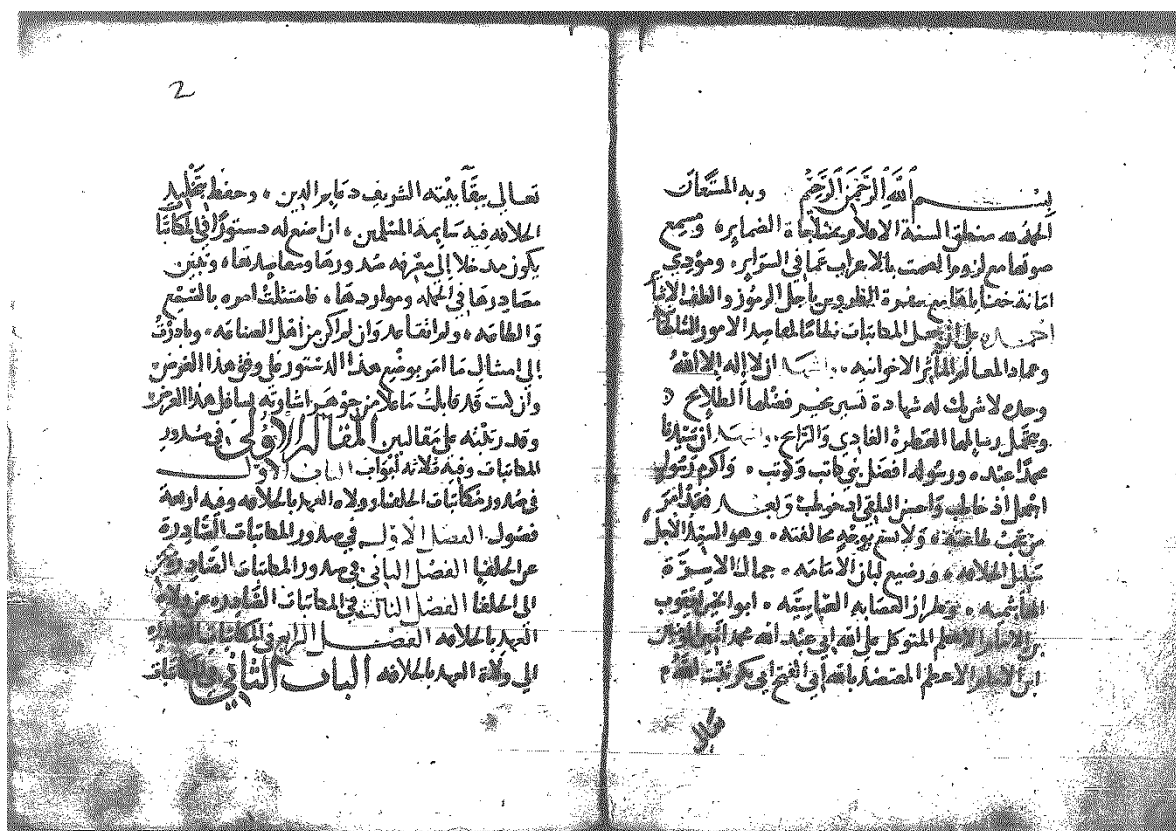 بسم الله الرحمن الرحيم وبه المستعان
الحمد لله منطق السنة الاقلام بمناجاة الضماير، ومسمع
صوتها مع لزوم الصمت بالاعراب عما في السراير، ومودي
امانة خفاياها مع سفرة الطروس باجل الرموز والطف
احمده على ان جعل المكاتبات نظاما لمقاصد الامور
وعماد المعالم الاخوانيه واشهد ان لا اله الا الله
وحده لا شريك له شهادة تسير بعبير فضلها الطلايح
وتتحمل رسالها العطرة الغادي والرايح واشهد أن سيدنا
محمدا عبده ورسوله افضل نبي كاتب وكوتب واكرم رسول
اجمل اذ خاطب واحسن التلقي اذ خوطب وبعد فقد امر
من تجب طاعته، ولا يسع بوجه مخالفته وهو السيد الجليل
سليل الخلافه، ورضيع لبان الامامه جمال الاسرة
الهاشميه وطراز العصابه العباسيه ابو الخير يعقوب
بن الامام الاعظم المتوكل على الله ابي عبد الله محمد امير المومنين
ابن الامام الاعظم المعتضد بالله ابي الفتح ابي بكر ثبت الله
2
تعالى ببقا بقيته الشريف دعايم الدين، وحفظ بتخليد
الخلافه فيه سايمة المسلمين، ان اضع له دستورا في المكاتبا
يكون مدخلا الى معرفه صدورها ومقاصدها، وتبين
مصادرها في الجمله ومواردها، فامتثلت امره بالسمع
والطاعه، ولم اتقاعد وان لم اكن من اهل الصناعه وبادرت
الى امتثال ما امر بوضع هذا الدستور على وفق هذا الغرض
وان كنت قد قابلت ما علا من جوهر اشارته بسافل هذا العرض
وقد رتبته على مقالتين المقاله الاولى في صدور
المكاتبات وفيه ثلاثه ابواب الباب الاول
في صدور مكاتبات الخلفا وولاه العهد بالخلافه وفيه اربعة
فصول الفصل الاول في صدور المكاتبات الصادرة
عن الخلفا الفصل الثاني في صدور المكاتبات الصادره
الى الخلفا الفصل الثالث في المكاتبات الصادره عن ولاه
العهد بالخلافه الفصل الرابع في المكاتبات الصادره
الى ولاة العهد بالخلافه الباب الثاني في المكاتبات